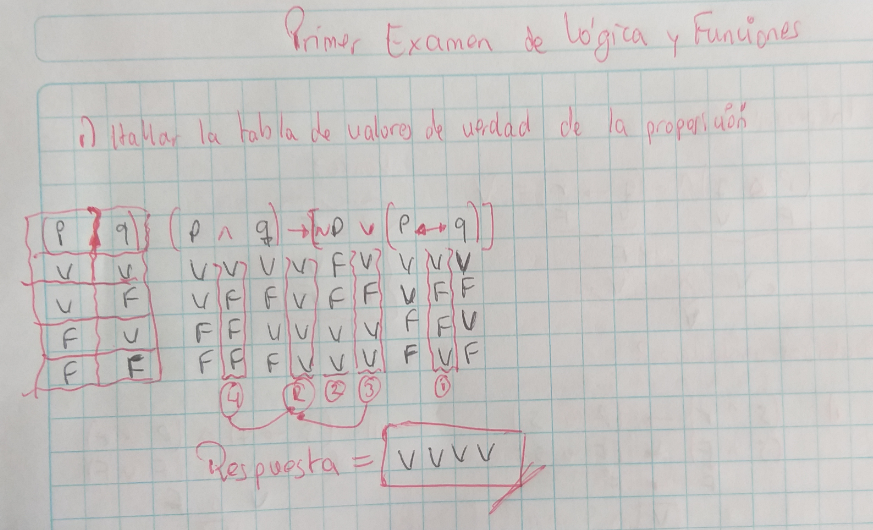 Primer Examen de Lógica y Funciones
1) Hallar la tabla de valores de verdad de la proposición
p q (p ∧ q) → [~p ∨ (p ↔ q)]
V V V V V V F V V V V
V F V F F V F F V F F
F V F F V V V V F F V
F F F F F V V V F V F
④ R ② ③ ①
Respuesta = V V V V